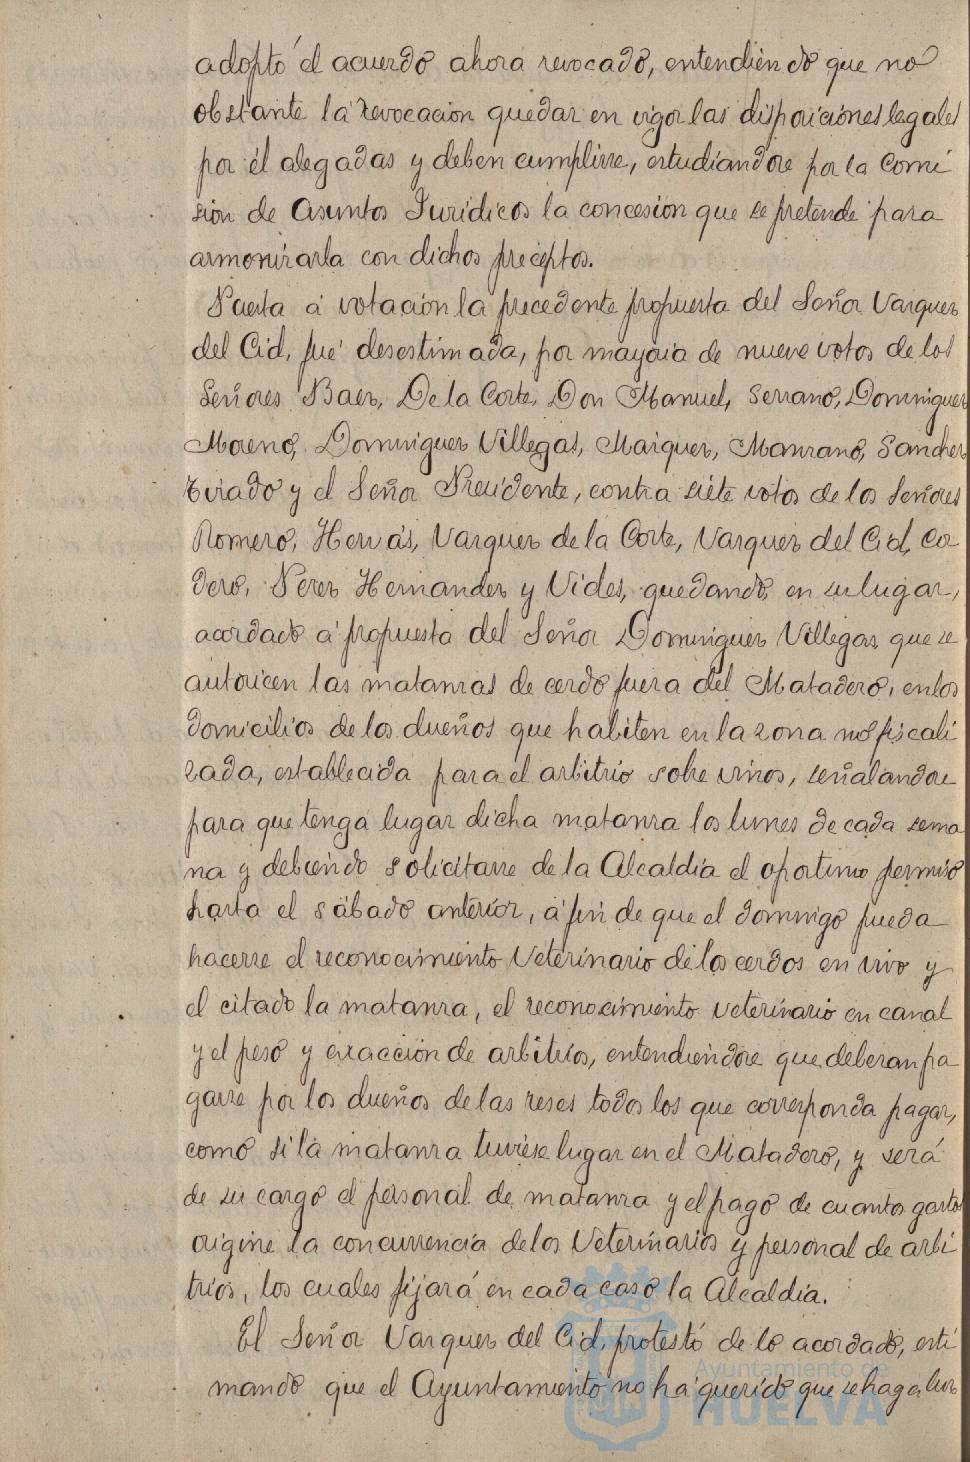 adoptó el acuerdo ahora revocado, entendiendo que no
obstante la revocación quedan en vigor las disposiciones legales
por él alegadas y deben cumplirse, estudiandose por la Comi
sión de Asuntos Jurídicos la concesión que se pretende para
armonizarla con dichos preceptos.
Puesta a votación la precedente propuesta del Señor Vazquez
del Cid, fué desestimada, por mayoia de nueve votos de los
Señores Baez, De la Corte, Don Manuel, Serrano, Dominguez
Moreno, Dominguez Villegas, Maiquez, Manzano, Sanchez
Tirado y el Señor Presidente, contra siete votos de los Señores
Romero, Hervás, Vazquez de la Corte, Vazquez del Cid, Co
dero, Perez Hernandez y Vides, quedando, en su lugar,
acordado a propuesta del Señor Dominguez Villegas, que se
autoricen las matanzas de cerdo fuera del Matadero, en los
domicilios de los dueños que habiten en la zona no fiscali
zada, establecida para el arbitrio sobre vinos, señalandose
para que tenga lugar dicha matanza los lunes de cada sema
na y debiendo solicitarse de la Alcaldía el oportuno permiso
hasta el sábado anterior, a fin de que el domingo pueda
hacerse el reconocimiento Veterinario de los cerdos en vivo y
el citado la matanza, el reconocimiento veterinario en canal
y el peso y exacción de arbitrios, entendiendose que deberan pa
garse por los dueños de las reses todos los que corresponda pagar,
como si la matanza tuviese lugar en el Matadero, y será
de su cargo el personal de matanza y el pago de cuantos gastos
origine la concurrencia de los Veterinarios y personal de arbi
trios, los cuales fijará en cada caso la Alcaldía.
El Señor Vazquez del Cid, protestó de lo acordado, esti
mando que el Ayuntamiento no ha querido que se haga luz
Ayuntamiento de
HUELVA